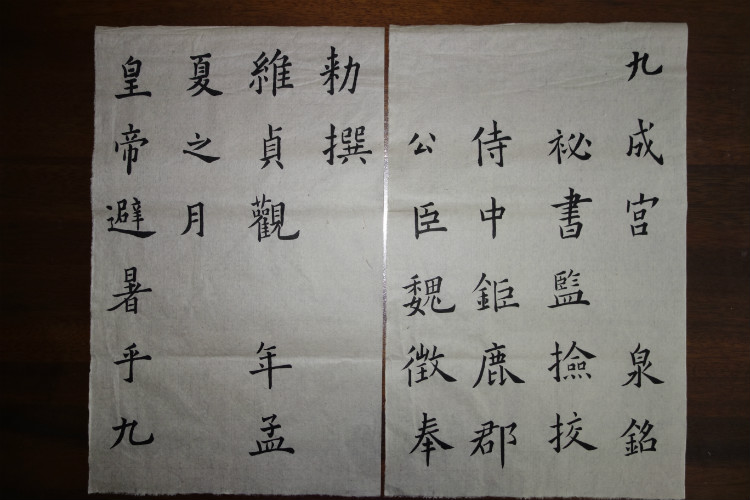 九成宫 泉銘
祕書監撿挍
侍中鉅鹿郡
公臣魏徵奉
勑撰
維貞觀 年孟
夏之月
皇帝避暑乎九